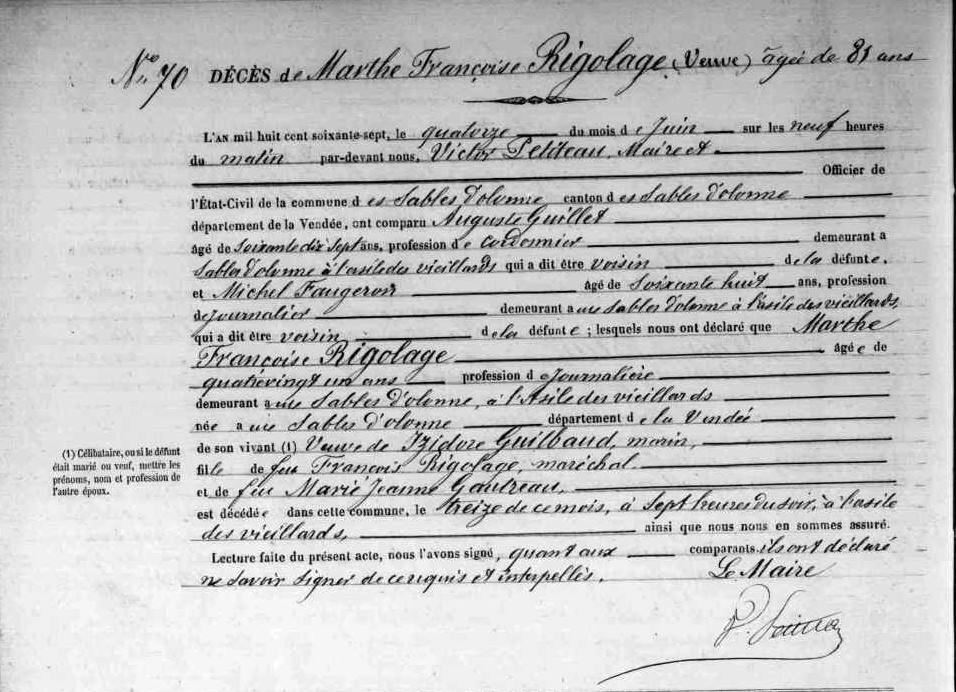 N° 70 DÉCÈS de Marthe Françoise Rigolage (Veuve) âgée de 81 ans
L'AN mil huit cent soixante-sept, le quatorze du mois de Juin sur les neuf heures
du matin par-devant nous, Victor Petiteau, Maire et
Officier de
l'État-Civil de la commune des Sables d'olonne canton des Sables d'olonne
département de la Vendée, ont comparu Auguste Guillet
âgé de Soixante dix Sept ans, profession de cordonnier demeurant a
Sables d'olonne à l'asile des vieillards qui a dit être voisin de la défunte.
et Michel Faugeron âgé de Soixante huit ans, profession
de Journalier demeurant a ux Sables d'olonne à l'asile des vieillards,
qui a dit être voisin de la défunte ; lesquels nous ont déclaré que Marthe
Françoise Rigolage âgée de
quatrevingt un ans profession de Journalière
demeurant a ux Sables d'olonne, à l'Asile des vieillards
née a ux Sables d'olonne département de la Vendée
de son vivant (1) Veuve de Izidore Guilbaud, marin,
fille de feu François Rigolage, maréchal
et de feu Marie Jeanne Gautreau,
est décédée dans cette commune, le treize de ce mois, à Sept heures du soir, à l'asile
des vieillards, ainsi que nous nous en sommes assuré.
Lecture faite du présent acte, nous l'avons signé, quant aux comparants ils ont déclaré
ne savoir signer de ce requis et interpellés.
Le Maire
(1) Célibataire, ou si le défunt
était marié ou veuf, mettre les
prénoms, nom et profession de
l'autre époux.